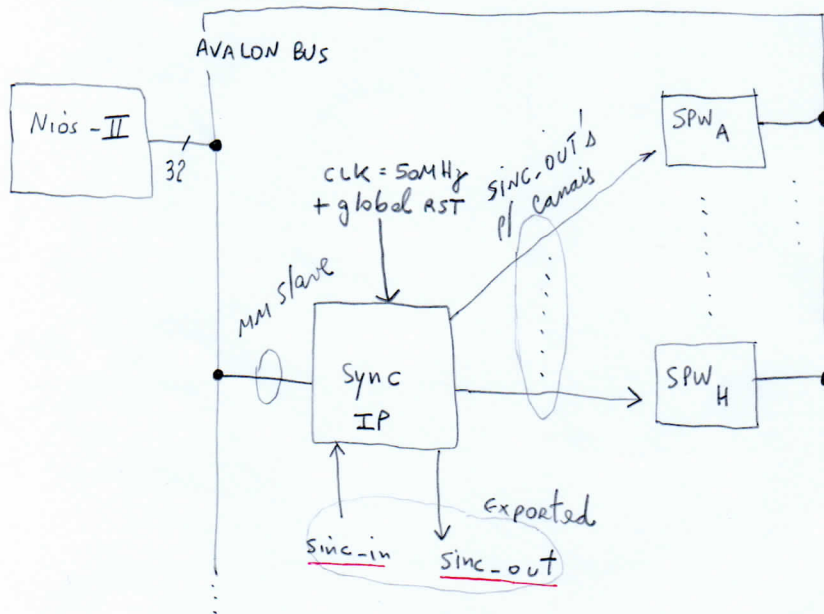 AVALON BUS
Nios-II
32
CLK = 50MHz
+ global RST
SINC_OUT's
p/ canais
SPW_A
MM slave
Sync
IP
SPW_H
Exported
sinc_in
sinc_out